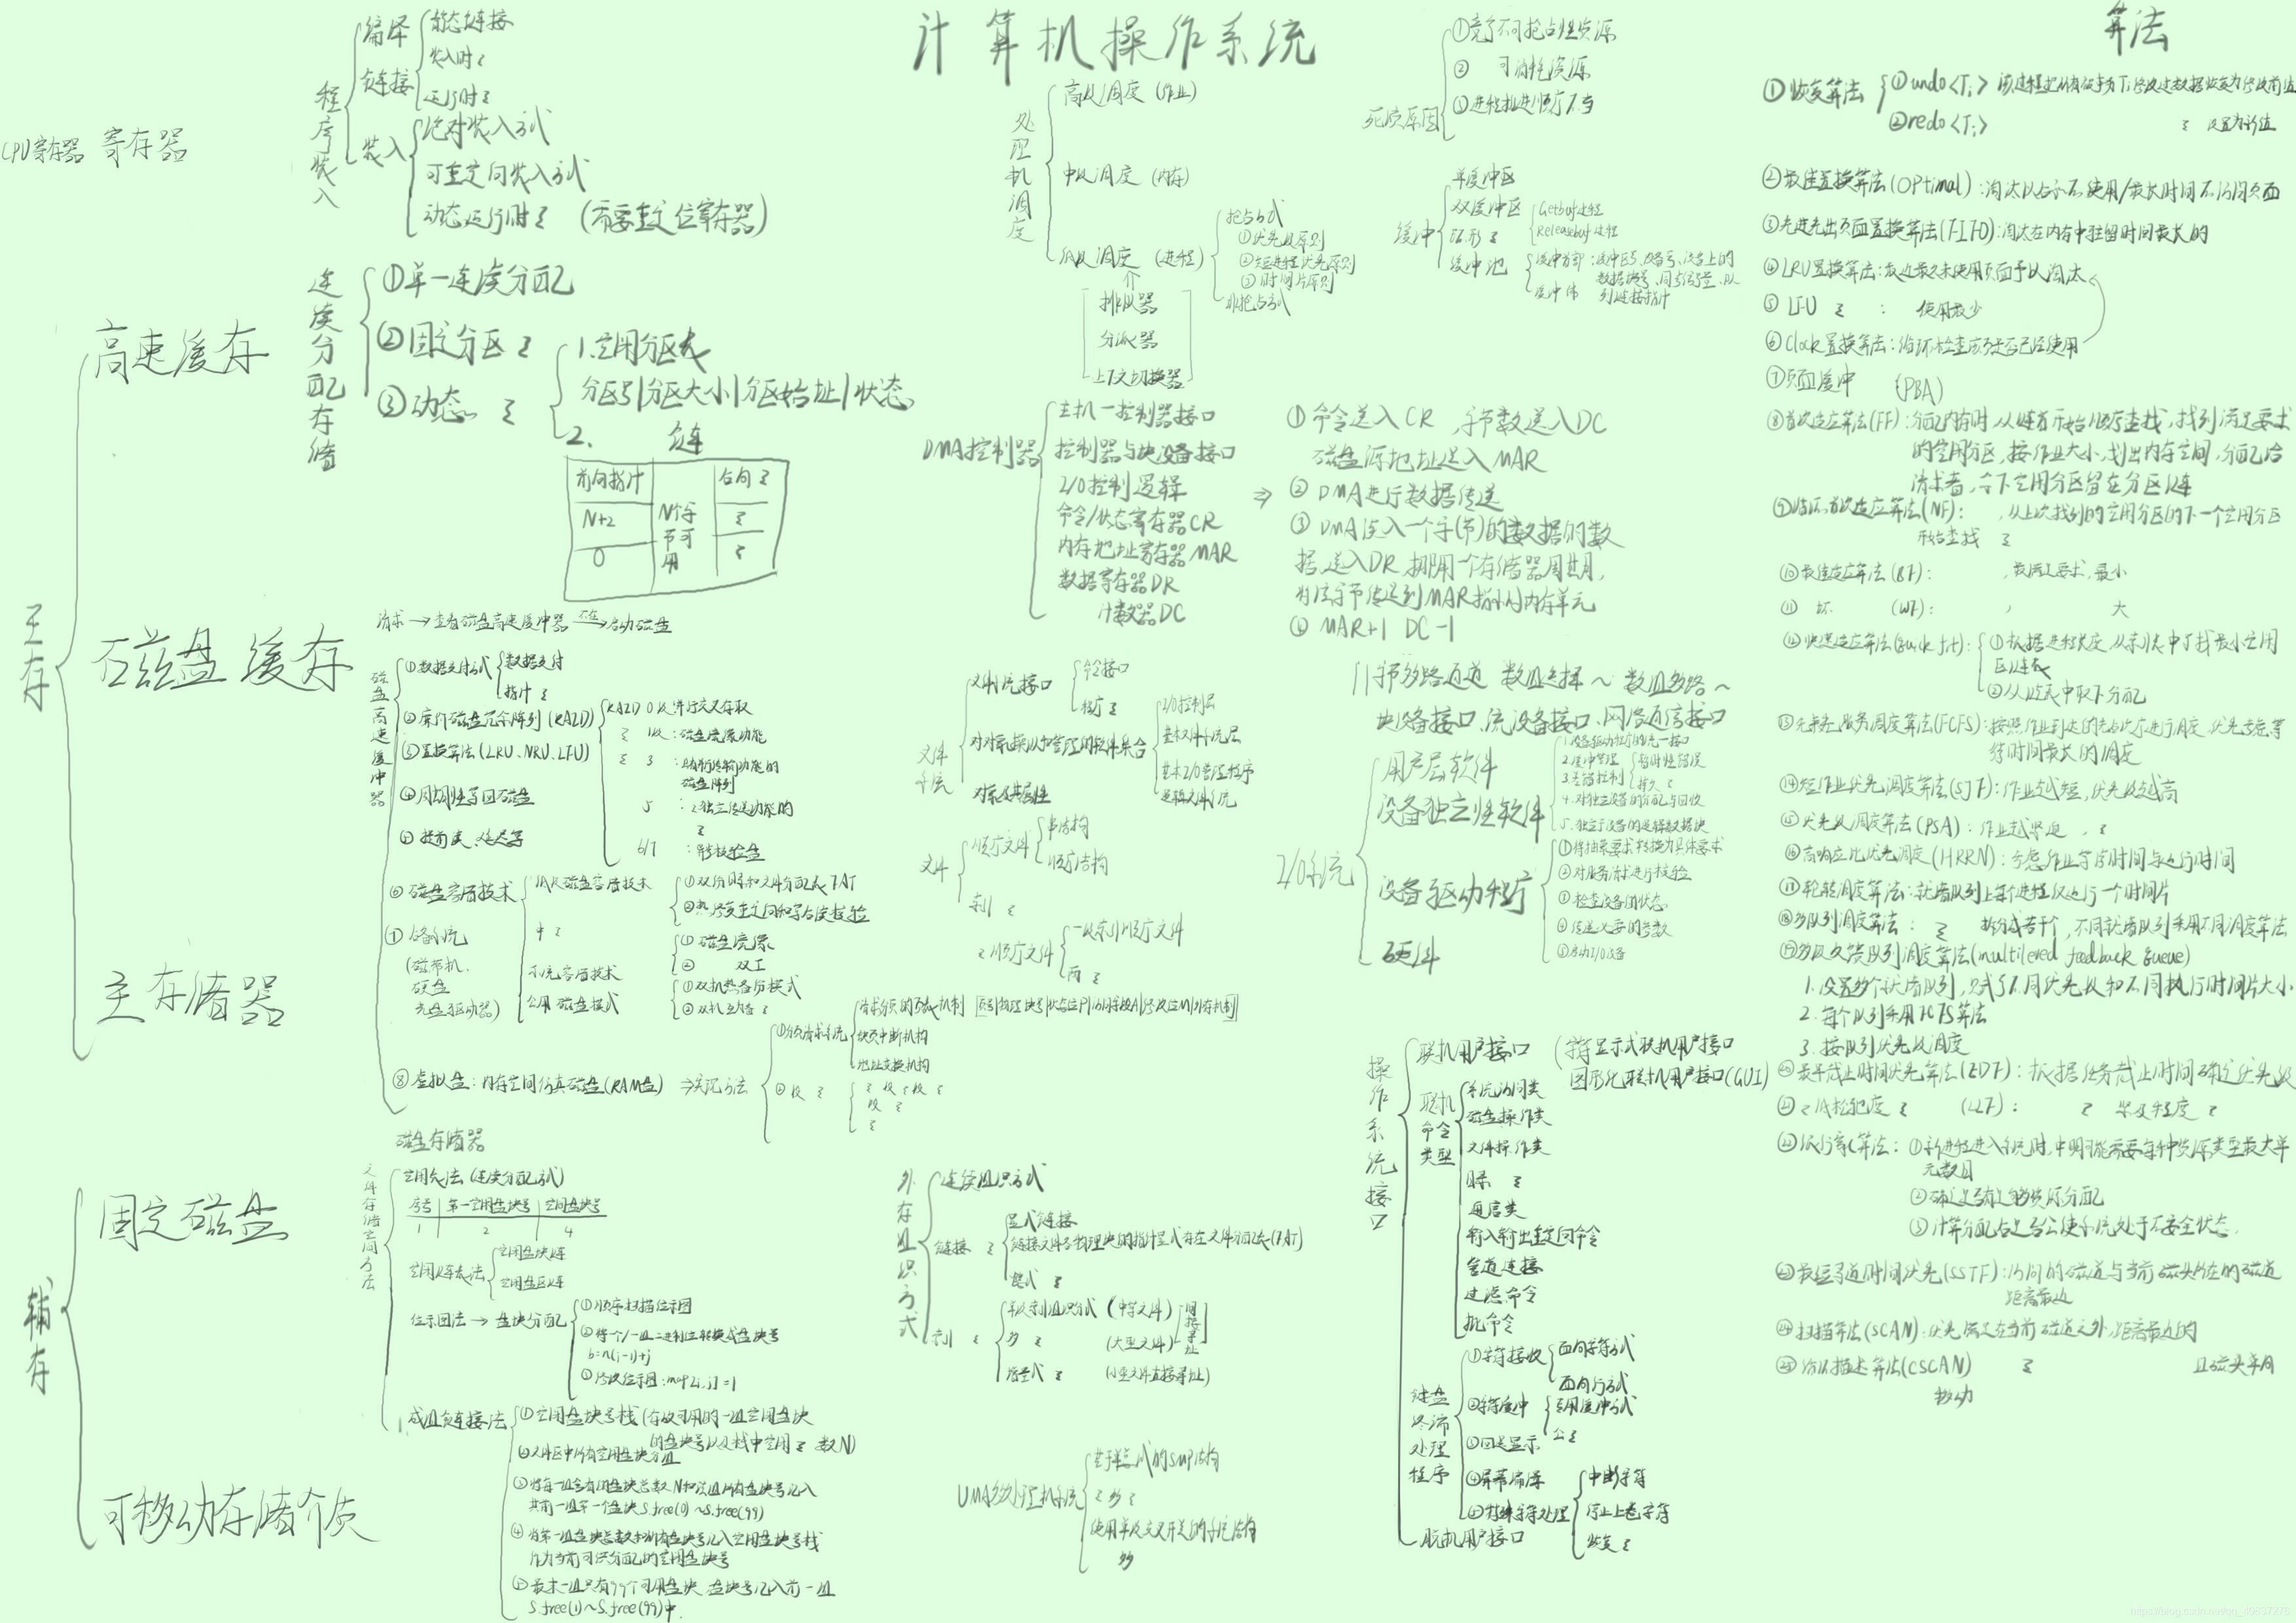 计算机操作系统
CPU寄存器 寄存器
程序装入
编译
链接
静态链接
装入时〻
运行时〻
装入
绝对装入方式
可重定向装入方式
动态运行时〻 (需要重定位寄存器)
主存
高速缓存
连续分配存储
①单一连续分配
②固定分区〻
③动态 〻
1.空闲分区表
分区号|分区大小|分区始址|状态
2. 〻链
前向指针 后向〻
N+2 N个字节可用 〻
0 〻
磁盘缓存
请求→查看磁盘高速缓冲器→启动磁盘
磁盘高速缓冲器
①数据交付方式
数据交付
指针〻
②廉价磁盘冗余阵列 (RAID)
RAID 0级 并行交叉存取
〻 1级:磁盘镜像功能
〻 3 :具有并行传输功能的
磁盘阵列
5 :〻独立传送功能的
〻
6/7 :异步校验盘
③置换算法 (LRU、NRU、LFU)
④周期性写回磁盘
⑤提前读、延迟写
⑥磁盘容错技术
低级磁盘容错技术
①双份目录和文件分配表FAT
②热修复重定向和写后读校验
中〻
①磁盘镜像
② 双工
系统容错技术
①双机热备份模式
②双机互备〻
公用磁盘模式
⑦后备系统
(磁带机、
硬盘
光盘驱动器)
⑧虚拟盘:内存空间仿真磁盘(RAM盘) ⇒实现方法
①分页请求系统
请求分页的页表机制 页号|物理块号|状态位P|访问字段A|修改位M|外存地址
缺页中断机构
地址变换机构
②段〻
〻段〻段〻
段〻
〻
主存储器
磁盘存储器
辅存
固定磁盘
可移动存储介质
文件存储空间方法
空闲表法 (连续分配方式)
序号|第一空闲盘块号|空闲盘块号
1 2 4
空闲链表法
空闲盘块链
空闲盘区链
位示图法→盘块分配
①顺序扫描位示图
②将一个/一组二进制位转换成盘块号
b=n(i-1)+j
③修改位示图:map[i,j]=1
成组链接法
①空闲盘块号栈 (存放可用的一组空闲盘块
的盘块号以及栈中空闲〻数N)
②文件区中所有空闲盘块分组
③将每一组含有的盘块总数N和该组所有盘块号记入
其前一组第一个盘块S.free(0)~S.free(99)
④将第一组盘块总数和所有盘块号记入空闲盘块号栈
作为当前可供分配的空闲盘块号
⑤最末一组只有99个可用盘块 盘块号记入前一组
S.free(1)~S.free(99)中.
处理机调度
高级调度 (作业)
中级调度 (内存)
低级调度 (进程)
排队器
分派器
上下文切换器
抢占方式
①优先级原则
②短进程优先原则
③时间片原则
非抢占方式
DMA控制器
主机—控制器接口
控制器与块设备接口
I/O控制逻辑
命令/状态寄存器CR
内存地址寄存器MAR
数据寄存器DR
计数器DC
⇒
①命令送入CR,字节数送入DC
磁盘源地址送入MAR
②DMA进行数据传送
③DMA读入一个字(节)的数据的数
据,送入DR,挪用一个存储器周期,
将该字节传送到MAR指示的内存单元
④MAR+1 DC-1
文件系统
文件系统接口
命令接口
程序〻
对对象操纵和管理的软件集合
I/O控制层
基本文件系统层
基本I/O管理程序
逻辑文件系统
对象及其属性
文件
顺序文件
串结构
顺序结构
索引〻
〻顺序文件
一级索引顺序文件
两〻
外存组织方式
连续组织方式
链接〻
显式链接
链接文件各物理块的指针显式存在文件分配表(FAT)
隐式〻
索引〻
单级索引组织方式 (中等文件)
多〻 (大型文件)
间接寻址
增量式〻 (小型文件直接寻址)
UMA多处理机系统
基于单总线的SMP结构
〻多〻
使用单级交叉开关的系统结构
多
死锁原因
①竞争不可抢占性资源
② 可消耗资源
③进程推进顺序不当
缓冲
单缓冲区
双缓冲区
环形〻
Getbuf过程
Releasebuf过程
缓冲池
缓冲首部:缓冲区号、设备号、设备上的
数据块号、同步信号量、队
列连接指针
缓冲体
字节多路通道 数组选择~ 数组多路~
块设备接口、流设备接口、网络通信接口
I/O系统
用户层软件
设备独立性软件
1.设备驱动程序的统一接口
2.缓冲管理
3.差错控制
暂时性错误
持久〻
4.对独立设备的分配与回收
5.独立于设备的逻辑数据块
设备驱动程序
①将抽象要求转换为具体要求
②对服务请求进行校验
③检查设备的状态
④传送必要的参数
⑤启动I/O设备
硬件
操作系统接口
联机用户接口 (字符显示式联机用户接口
图形化联机用户接口(GUI)
联机命令类型
系统访问类
磁盘操作类
文件操作类
目录〻
通信类
输入输出重定向命令
管道连接
过滤命令
批命令
键盘终端处理程序
①字符接收
面向字符方式
面向行方式
②字符缓冲
专用缓冲方式
公〻
③回送显示
④屏幕编辑
⑤特殊字符处理
中断字符
停止上卷字符
恢复〻
脱机用户接口
算法
①恢复算法
①undo<Ti> 该过程把所有被事务Ti修改过数据恢复为修改前值
②redo<Ti> 〻 设置为新值
②最佳置换算法(OPtimal):淘汰以后永不使用/最长时间不访问页面
③先进先出页面置换算法(FIFO):淘汰在内存中驻留时间最长的
④LRU置换算法:最近最久未使用页面予以淘汰
⑤LFU 〻 : 使用最少
⑥Clock置换算法:循环检查页是否已经使用
⑦页面缓冲 (PBA)
⑧首次适应算法(FF):分配内存时,从链首开始顺序查找,找到满足要求
的空闲分区,按作业大小,划出内存空间,分配给
请求者,余下空闲分区留在分区链
⑨循环首次适应算法(NF): ,从上次找到的空闲分区的下一个空闲分区
开始查找 〻
⑩最佳适应算法(BF): ,最满足要求,最小
⑪ 坏 (WF): , 大
⑫快速适应算法(quick fit):①根据进程长度,从索引表中寻找最小空闲
区链表
②从链表中取下分配
⑬先来先服务调度算法(FCFS):按照作业到达的先后次序进行调度,优先考虑等
待时间最长的调度
⑭短作业优先调度算法(SJF):作业越短,优先级越高
⑮优先级调度算法(PSA):作业越紧迫,〻
⑯高响应比优先调度(HRRN):考虑作业等待时间与运行时间
⑰轮转调度算法:就绪队列上每个进程仅运行一个时间片
⑱多队列调度算法: 〻 拆分成若干个,不同就绪队列采用不同调度算法
⑲多级反馈队列调度算法(multileved feedback queue)
1.设置多个就绪队列,赋予不同优先级和不同执行时间片大小
2.每个队列采用FCFS算法
3.按队列优先级调度
⑳最早截止时间优先算法(EDF):根据任务截止时间确定优先级
㉑〻低松弛度〻 (LLF): 〻 紧急程度〻
㉒银行家算法:①新进程进入系统时,申明可能需要每种资源类型最大单
元数目
②确定是否有足够资源分配
③计算分配后是否会使系统处于不安全状态.
㉓最短寻道时间优先(SSTF):访问的磁道与当前磁头所在的磁道
距离最近
㉔扫描算法(SCAN):优先满足在当前磁道之外,距离最近的
㉕循环扫描算法(CSCAN) 〻 且磁头单向
移动